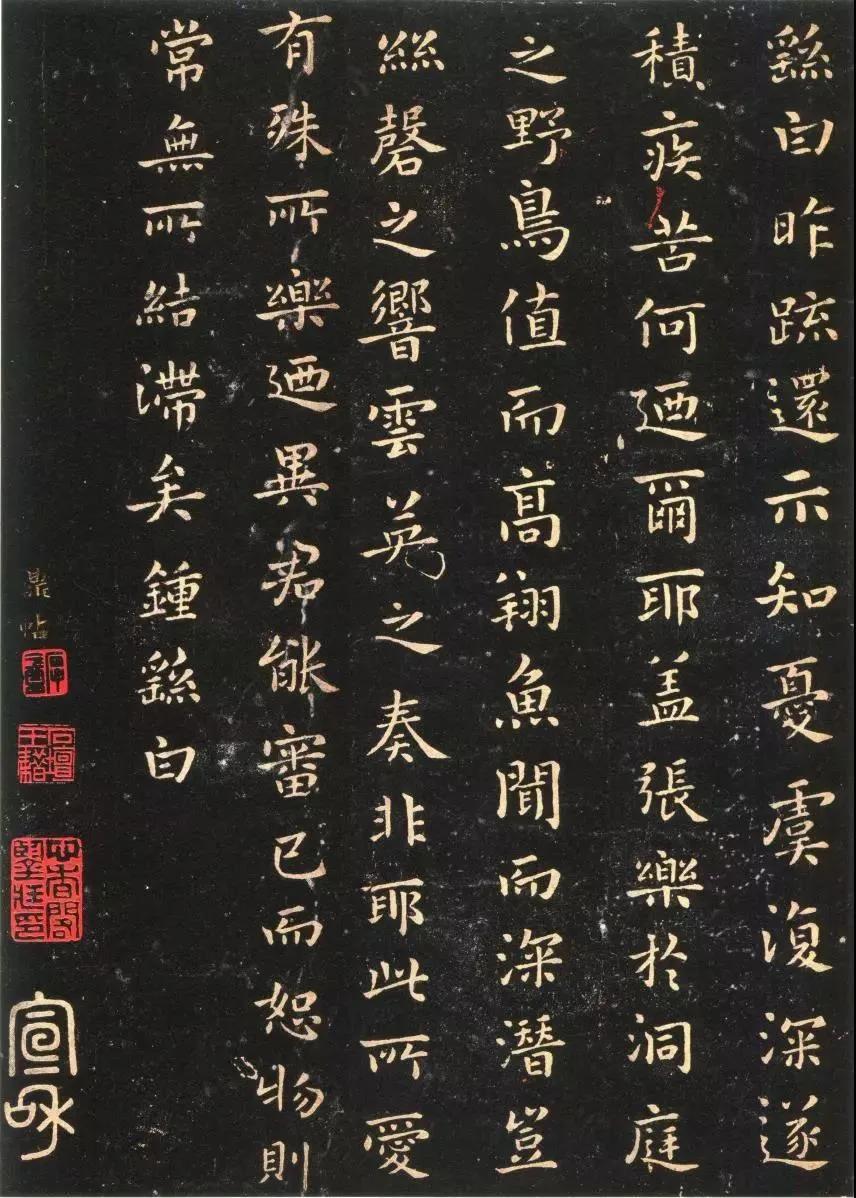 繇白昨疏還示知憂虞復深遂
積疾苦何迺爾耶盖張樂於洞庭
之野鳥值而高翔魚聞而深潛豈
絲磬之響雲英之奏非耶此所愛
有殊所樂迺異君能審己而恕物則
常無所結滯矣鍾繇白
鼎帖